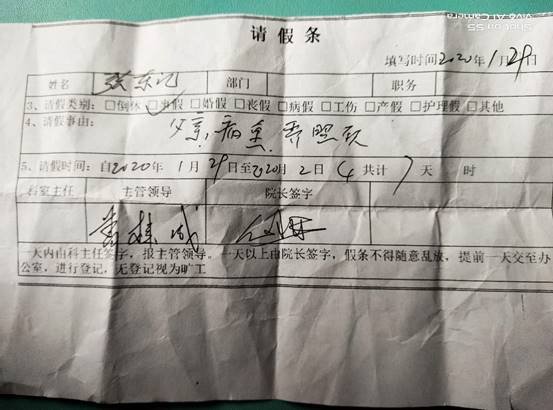 Shot on S5
Vivo AI camera
请假条
填写时间2020年1月29日
姓名 张东 部门 职务
3、请假类别：□倒休 □事假 □婚假 □丧假 □病假 □工伤 □产假 □护理假 □其他
4、请假事由：
父亲病重 需照顾
5、请假时间：自2020年1月29日至2020月2日4共计7天 时
科室主任 主管领导 院长签字
一天内由科主任签字，报主管领导。一天以上由院长签字，假条不得随意乱放，提前一天交至办
公室，进行登记，无登记视为旷工